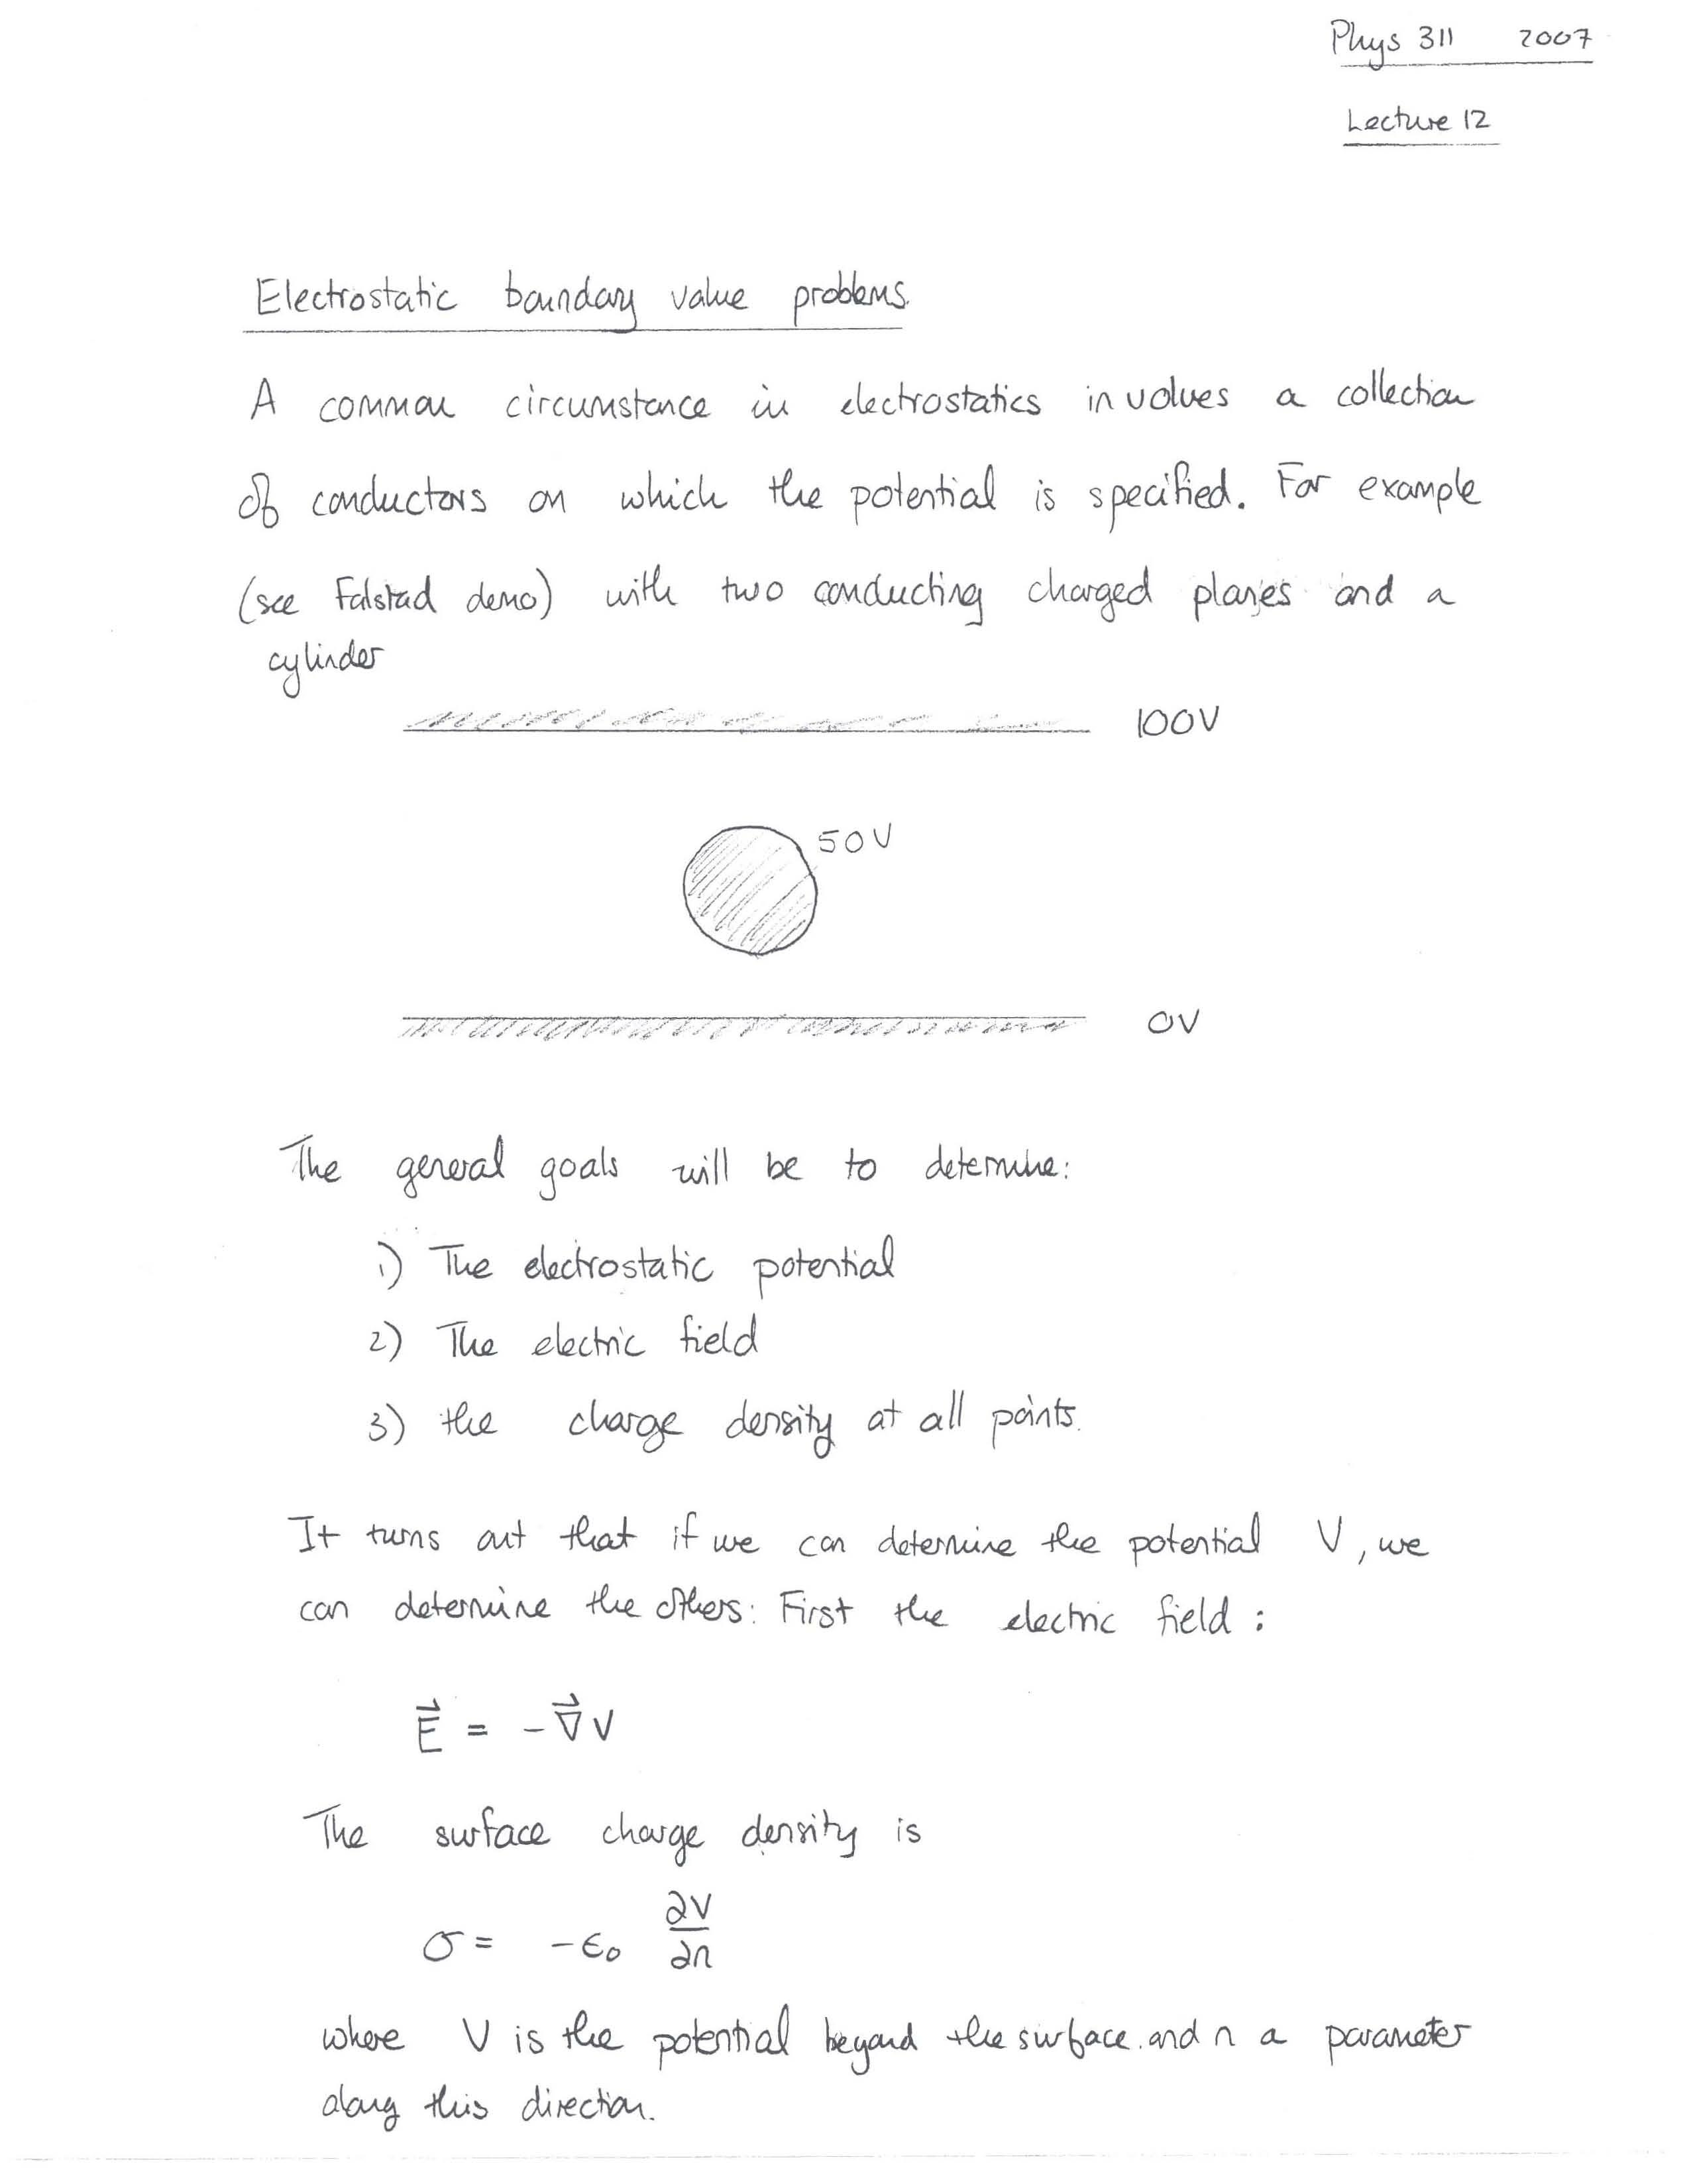 Phys 311 2007
Lecture 12
Electrostatic boundary value problems.
A common circumstance in electrostatics involves a collection
of conductors on which the potential is specified. For example
(see Falstad demo) with two conducting charged planes and a
cylinder
100V
50V
0V
The general goals will be to determine:
1) The electrostatic potential
2) The electric field
3) the charge density at all points.
It turns out that if we can determine the potential V, we
can determine the others: First the electric field:
$\vec{E} = -\vec{\nabla} V$
The surface charge density is
$\sigma = -\epsilon_0 \frac{\partial V}{\partial n}$
where V is the potential beyond the surface and n a parameter
along this direction.